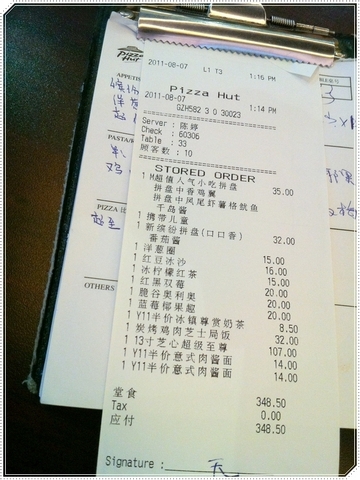 Pizza
Hut
2011-08-07 L1 T3 1:16 PM
Pizza Hut
2011-08-07 1:14 PM
GZH582 3 0 30023
Server : 陈婷
Check : 60306
Table : 33
顾客数 : 10
STORED ORDER
1 M超值人气小吃拼盘 35.00
拼盘中香鸡翼
拼盘中凤尾虾薯格鱿鱼
千岛酱
1 携带儿童
1 新缤纷拼盘(口口香) 32.00
番茄酱
1 洋葱圈 15.00
1 红豆冰沙 16.00
1 冰柠檬红茶 15.00
1 红黑双莓 20.00
1 脆谷奥利奥 20.00
1 蓝莓椰果趣 20.00
1 Y11半价冰镇尊赏奶茶 8.50
1 炭烤鸡肉芝士局饭 32.00
1 13寸芝心超级至尊 107.00
1 Y11半价意式肉酱面 14.00
1 Y11半价意式肉酱面 14.00
堂食 348.50
Tax 0.00
应付 348.50
Signature :
APPETI
PASTA/R
PIZZA
OTHERS